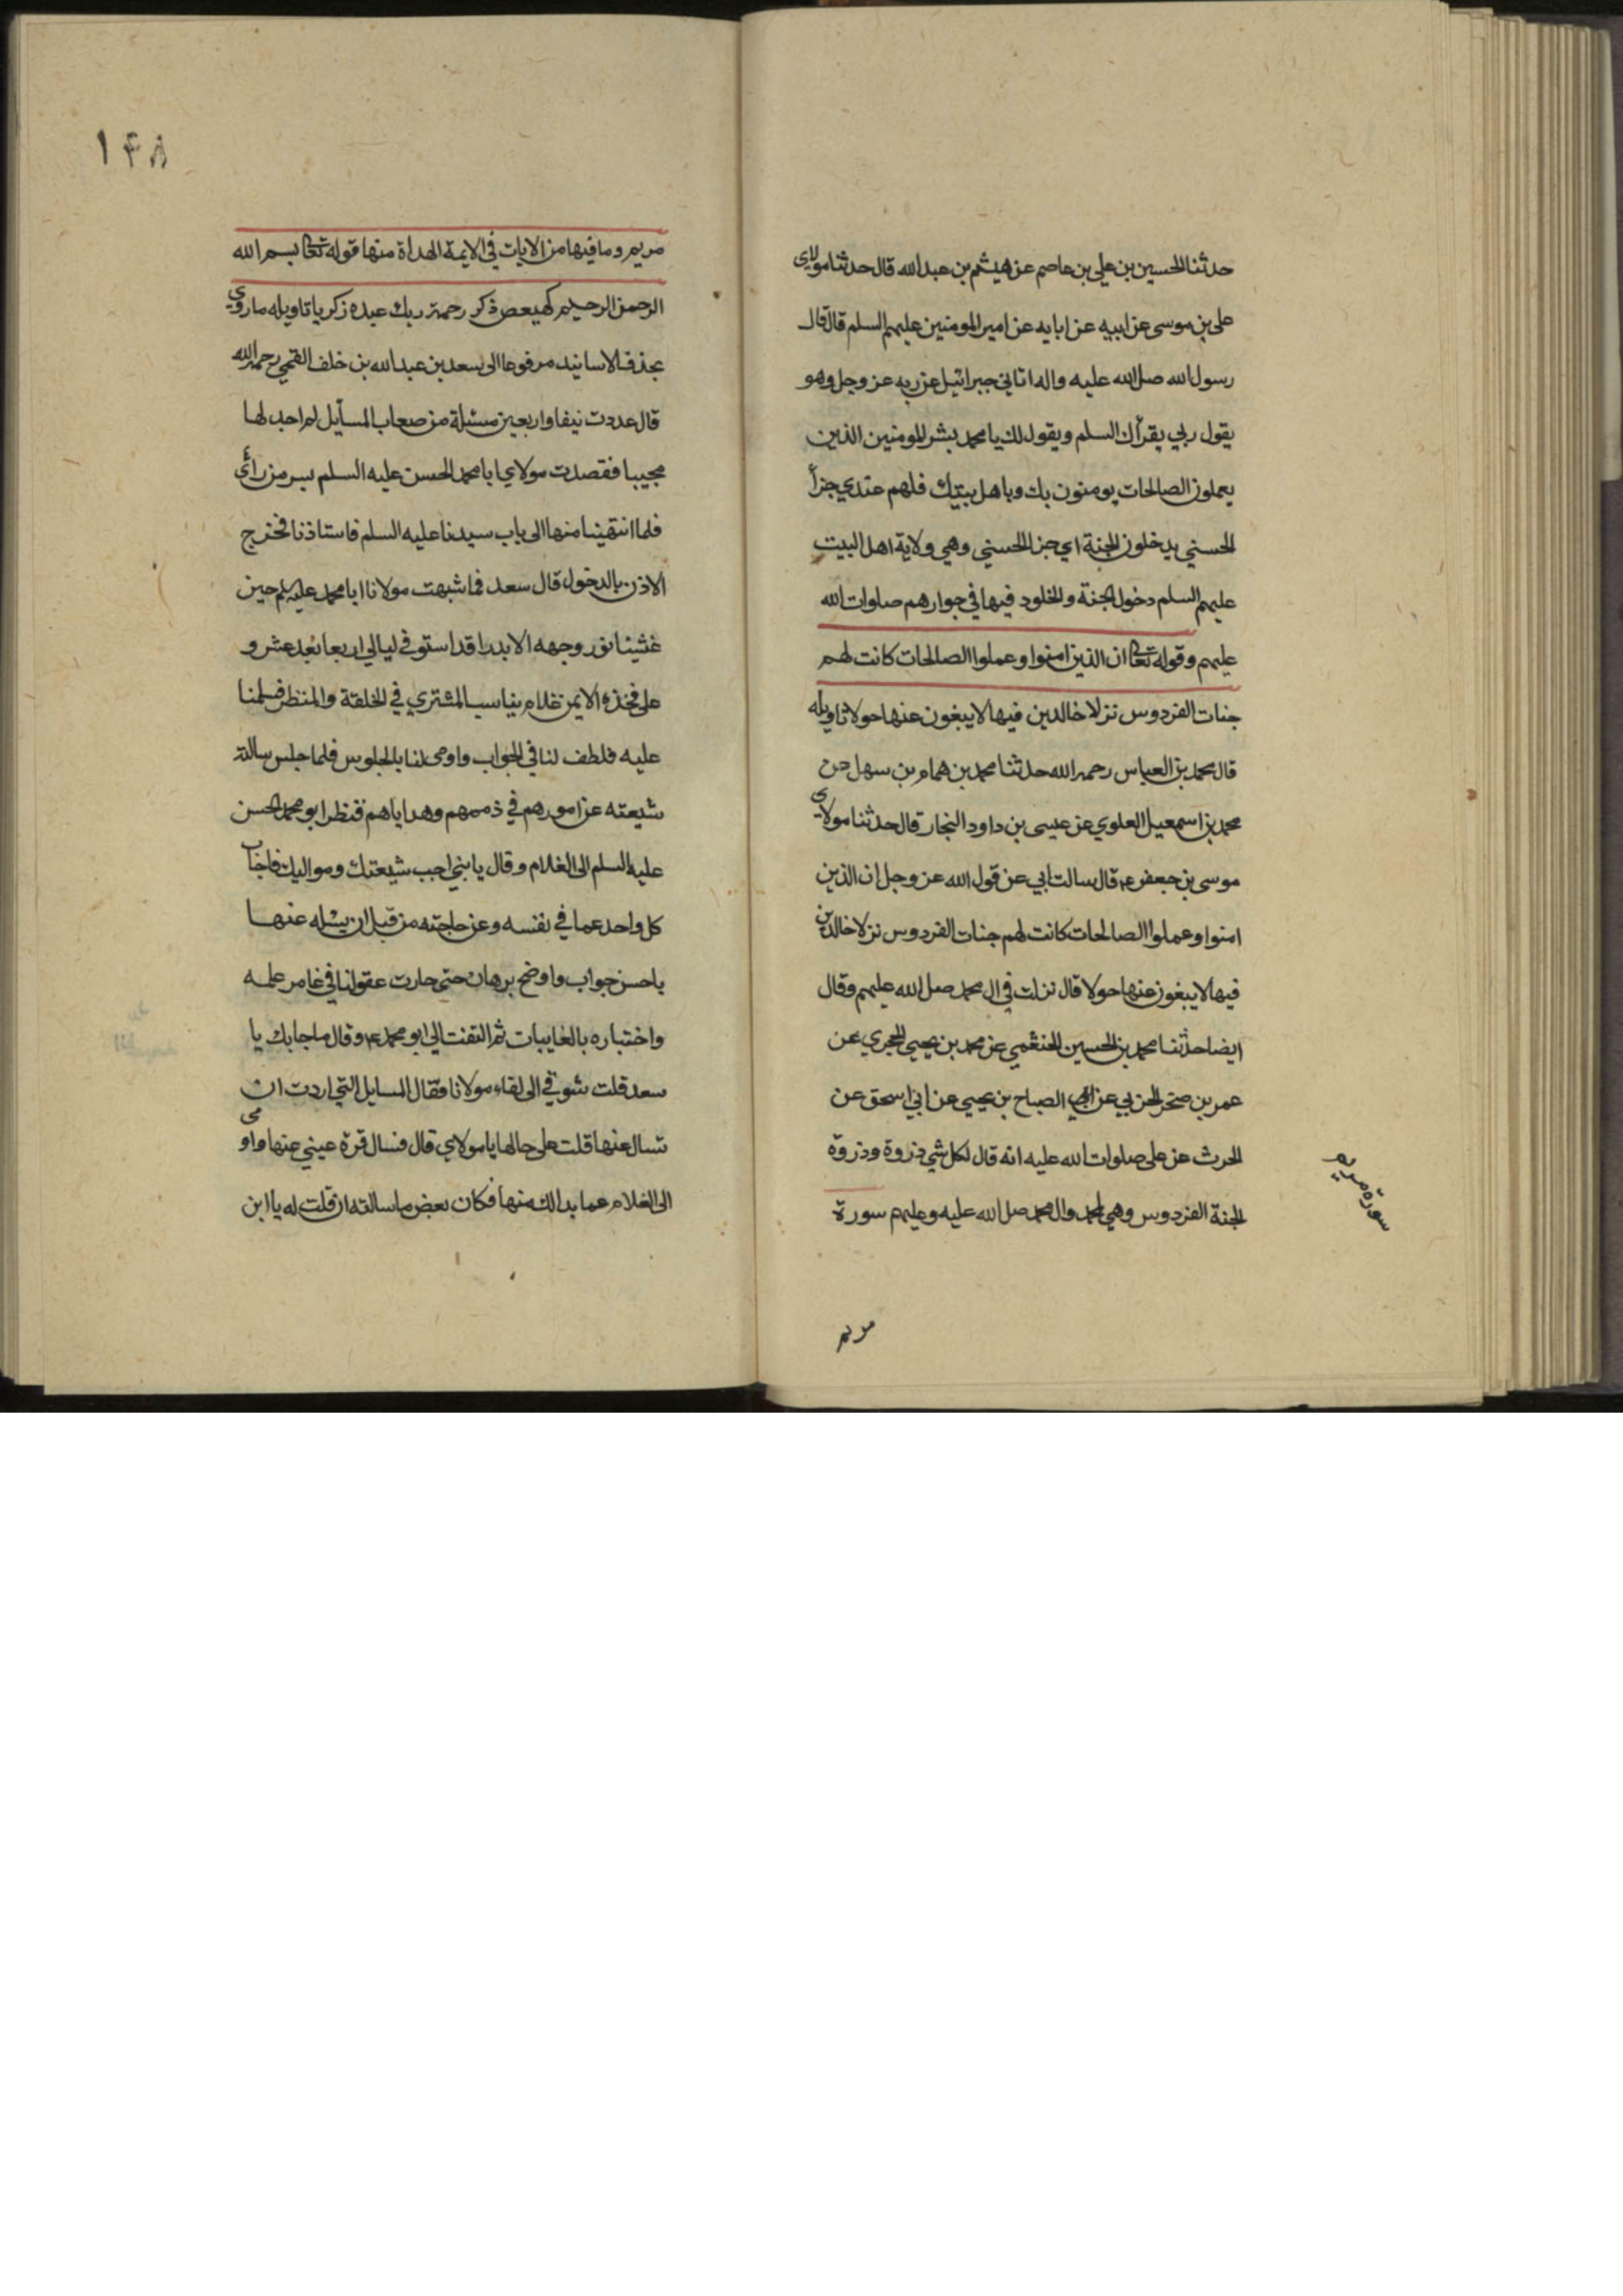 حدثنا الحسين بن علي بن عاصم عن هيثم بن عبدالله قال حدثنا مولاي
علي بن موسى عن ابيه عن ابايه عن امير المومنين عليهم السلم قال قال
رسول الله صلى الله عليه واله اتاني جبرائيل عن ربه عز وجل وهو
يقول ربي يقرأك السلم ويقول لك يا محمد بشر المومنين الذين
يعملون الصالحات يومنون بك وباهل بيتك فلهم عندي جزأ
الحسنى يدخلون الجنة اي جزا الحسني وهي ولاية اهل البيت
عليهم السلم دخول الجنة والخلود فيها في جوارهم صلوات الله
عليهم وقوله تعالى ان الذين امنوا وعملوا الصالحات كانت لهم
جنات الفردوس نزلا خالدين فيها لا يبغون عنها حولا تاويله
قال محمد بن العباس رحمه الله حدثنا محمد بن همام بن سهل عن
محمد بن اسمعيل العلوي عن عيسى بن داود النجار قال حدثنا مولاي
موسى بن جعفر ع قال سالت ابي عن قول الله عز وجل ان الذين
امنوا وعملوا الصالحات كانت لهم جنات الفردوس نزلا خالدين
فيها لا يبغون عنها حولا قال نزلت في ال محمد صلى الله عليهم وقال
ايضا حدثنا محمد بن الحسين الخثعمي عن محمد بن يحيى الحجري عن
عمر بن صخر عن الصباح بن يحيي عن ابي اسحق عن
الحرث عن علي صلوات الله عليه انه قال لكل شي ذروة وذروة
الجنة الفردوس وهي لمحمد وال محمد صلى الله عليه وعليهم سورة
سورة مريم
مريم
١٤٨
مريم وما فيها من الايات في الايمة الهداة منها قوله تعالى بسم الله
الرحمن الرحيم كهيعص ذكر رحمة ربك عبده زكريا تاويله ما روي
بحذف الاسانيد مرفوعا الى سعد بن عبدالله بن خلف القمي رحمه الله
قال عددت نيفا واربعين مسئلة من صعاب المسآيل لم اجد لها
مجيبا فقصدت مولاي ابا محمد الحسن عليه السلم بسر من رأى
فلما انتهينا منها الى باب سيدنا عليه السلم فاستاذنا فخرج
الاذن بالدخول قال سعد فما شبهت مولانا ابا محمد عليه السلم حين
غشينا نور وجهه الا بدرا قد استوفى ليالي اربعا بعد عشر و
على فخذه الايمن غلام يناسب المشتري في الخلقة والمنظر فسلمنا
عليه فلطف لنا في الجواب واومى لنا بالجلوس فلما جلس سالته
شيعته عن امورهم في ذممهم وهداياهم فنظر ابو محمد الحسن
عليه السلم الى الغلام وقال يا بني اجب شيعتك ومواليك فاجاب
كل واحد عما في نفسه وعن حاجته من قبل ان يسئله عنها
باحسن جواب واوضح برهان حتى حارت عقولنا في غامر علمه
واختباره بالغايبات ثم التفت الي ابو محمد ع وقال ما جا بك يا
سعد قلت شوقي الى لقاء مولانا فقال المسايل التي اردت ان
تسال عنها قلت على حالها يا مولاي قال فسال قرة عيني عنها واومى
الى الغلام عما بدا لك منها فكان بعض ما سالته ان قلت له يا ابن